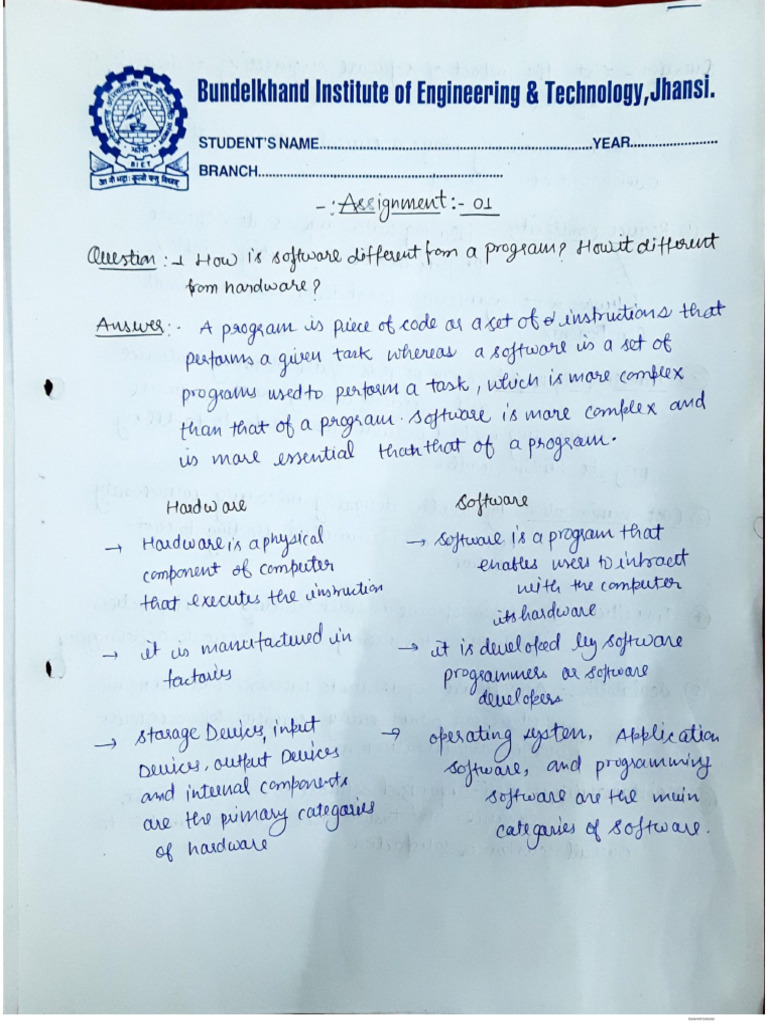 Bundelkhand Institute of Engineering & Technology, Jhansi.
STUDENT'S NAME............................................................YEAR.......................
BRANCH.....................................................
BIET
-: Assignment:- 01
Question :-1 How is software different from a program? How it different
from hardware?
Answer:- A program is piece of code as a set of instructions that
performs a given task whereas a software is a set of
programs used to perform a task, which is more complex
than that of a program. Software is more complex and
is more essential than that of a program.
Hardware Software
→ Hardware is a physical → Software is a program that
component of computer enables users to intract
that executes the instruction with the computer
its hardware
→ it is manufactured in → it is developed by software
factories programmers or software
developers
→ Storage Devices, input → operating system, Application
Devices, output Devices software, and programming
and internal components software are the main
are the primary categories categories of software.
of hardware